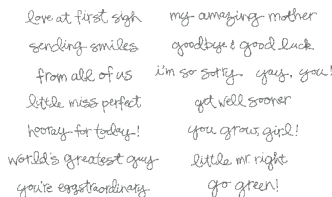 love at first sigh
sending smiles
from all of us
little miss perfect
hooray for today!
world's greatest guy
you're eggstraordinary
my amazing mother
goodbye & good luck
i'm so sorry yay, you!
get well sooner
you grow, girl!
little mr. right
go green!